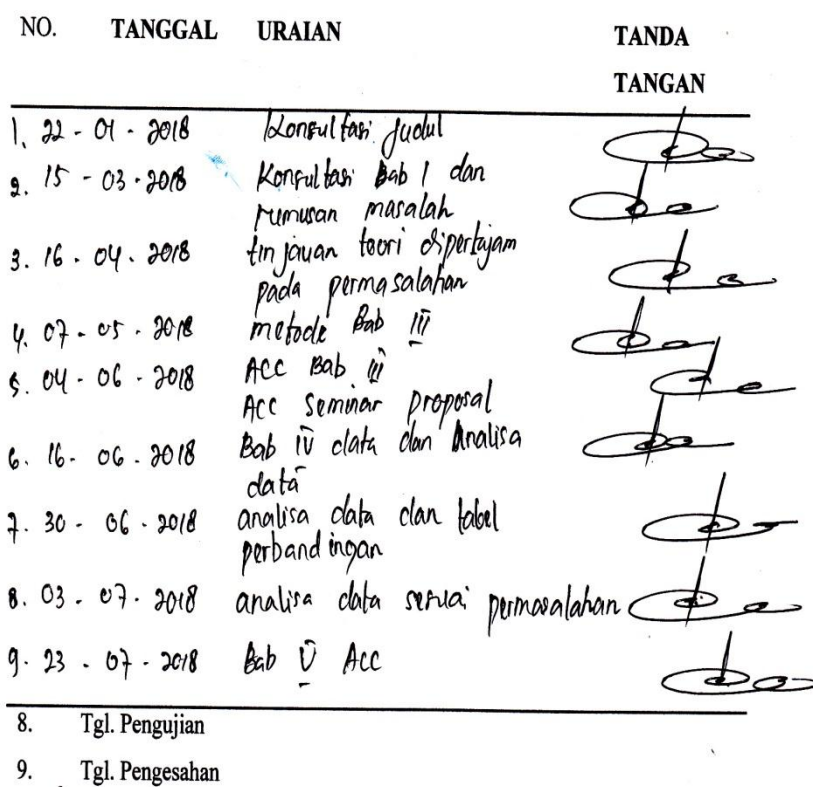 NO. TANGGAL URAIAN TANDA
TANGAN
1. 22 - 01 - 2018 Konsultasi Judul
2. 15 - 03 - 2018 Konsultasi Bab I dan
rumusan masalah
3. 16 - 04 - 2018 tinjauan teori dipertajam
pada permasalahan
4. 07 - 05 - 2018 metode Bab III
5. 04 - 06 - 2018 ACC Bab III
ACC Seminar proposal
6. 16 - 06 - 2018 Bab IV data dan Analisa
data
7. 30 - 06 - 2018 analisa data dan tabel
perbandingan
8. 03 - 07 - 2018 analisa data sesuai permasalahan
9. 23 - 07 - 2018 Bab V Acc
8. Tgl. Pengujian
9. Tgl. Pengesahan